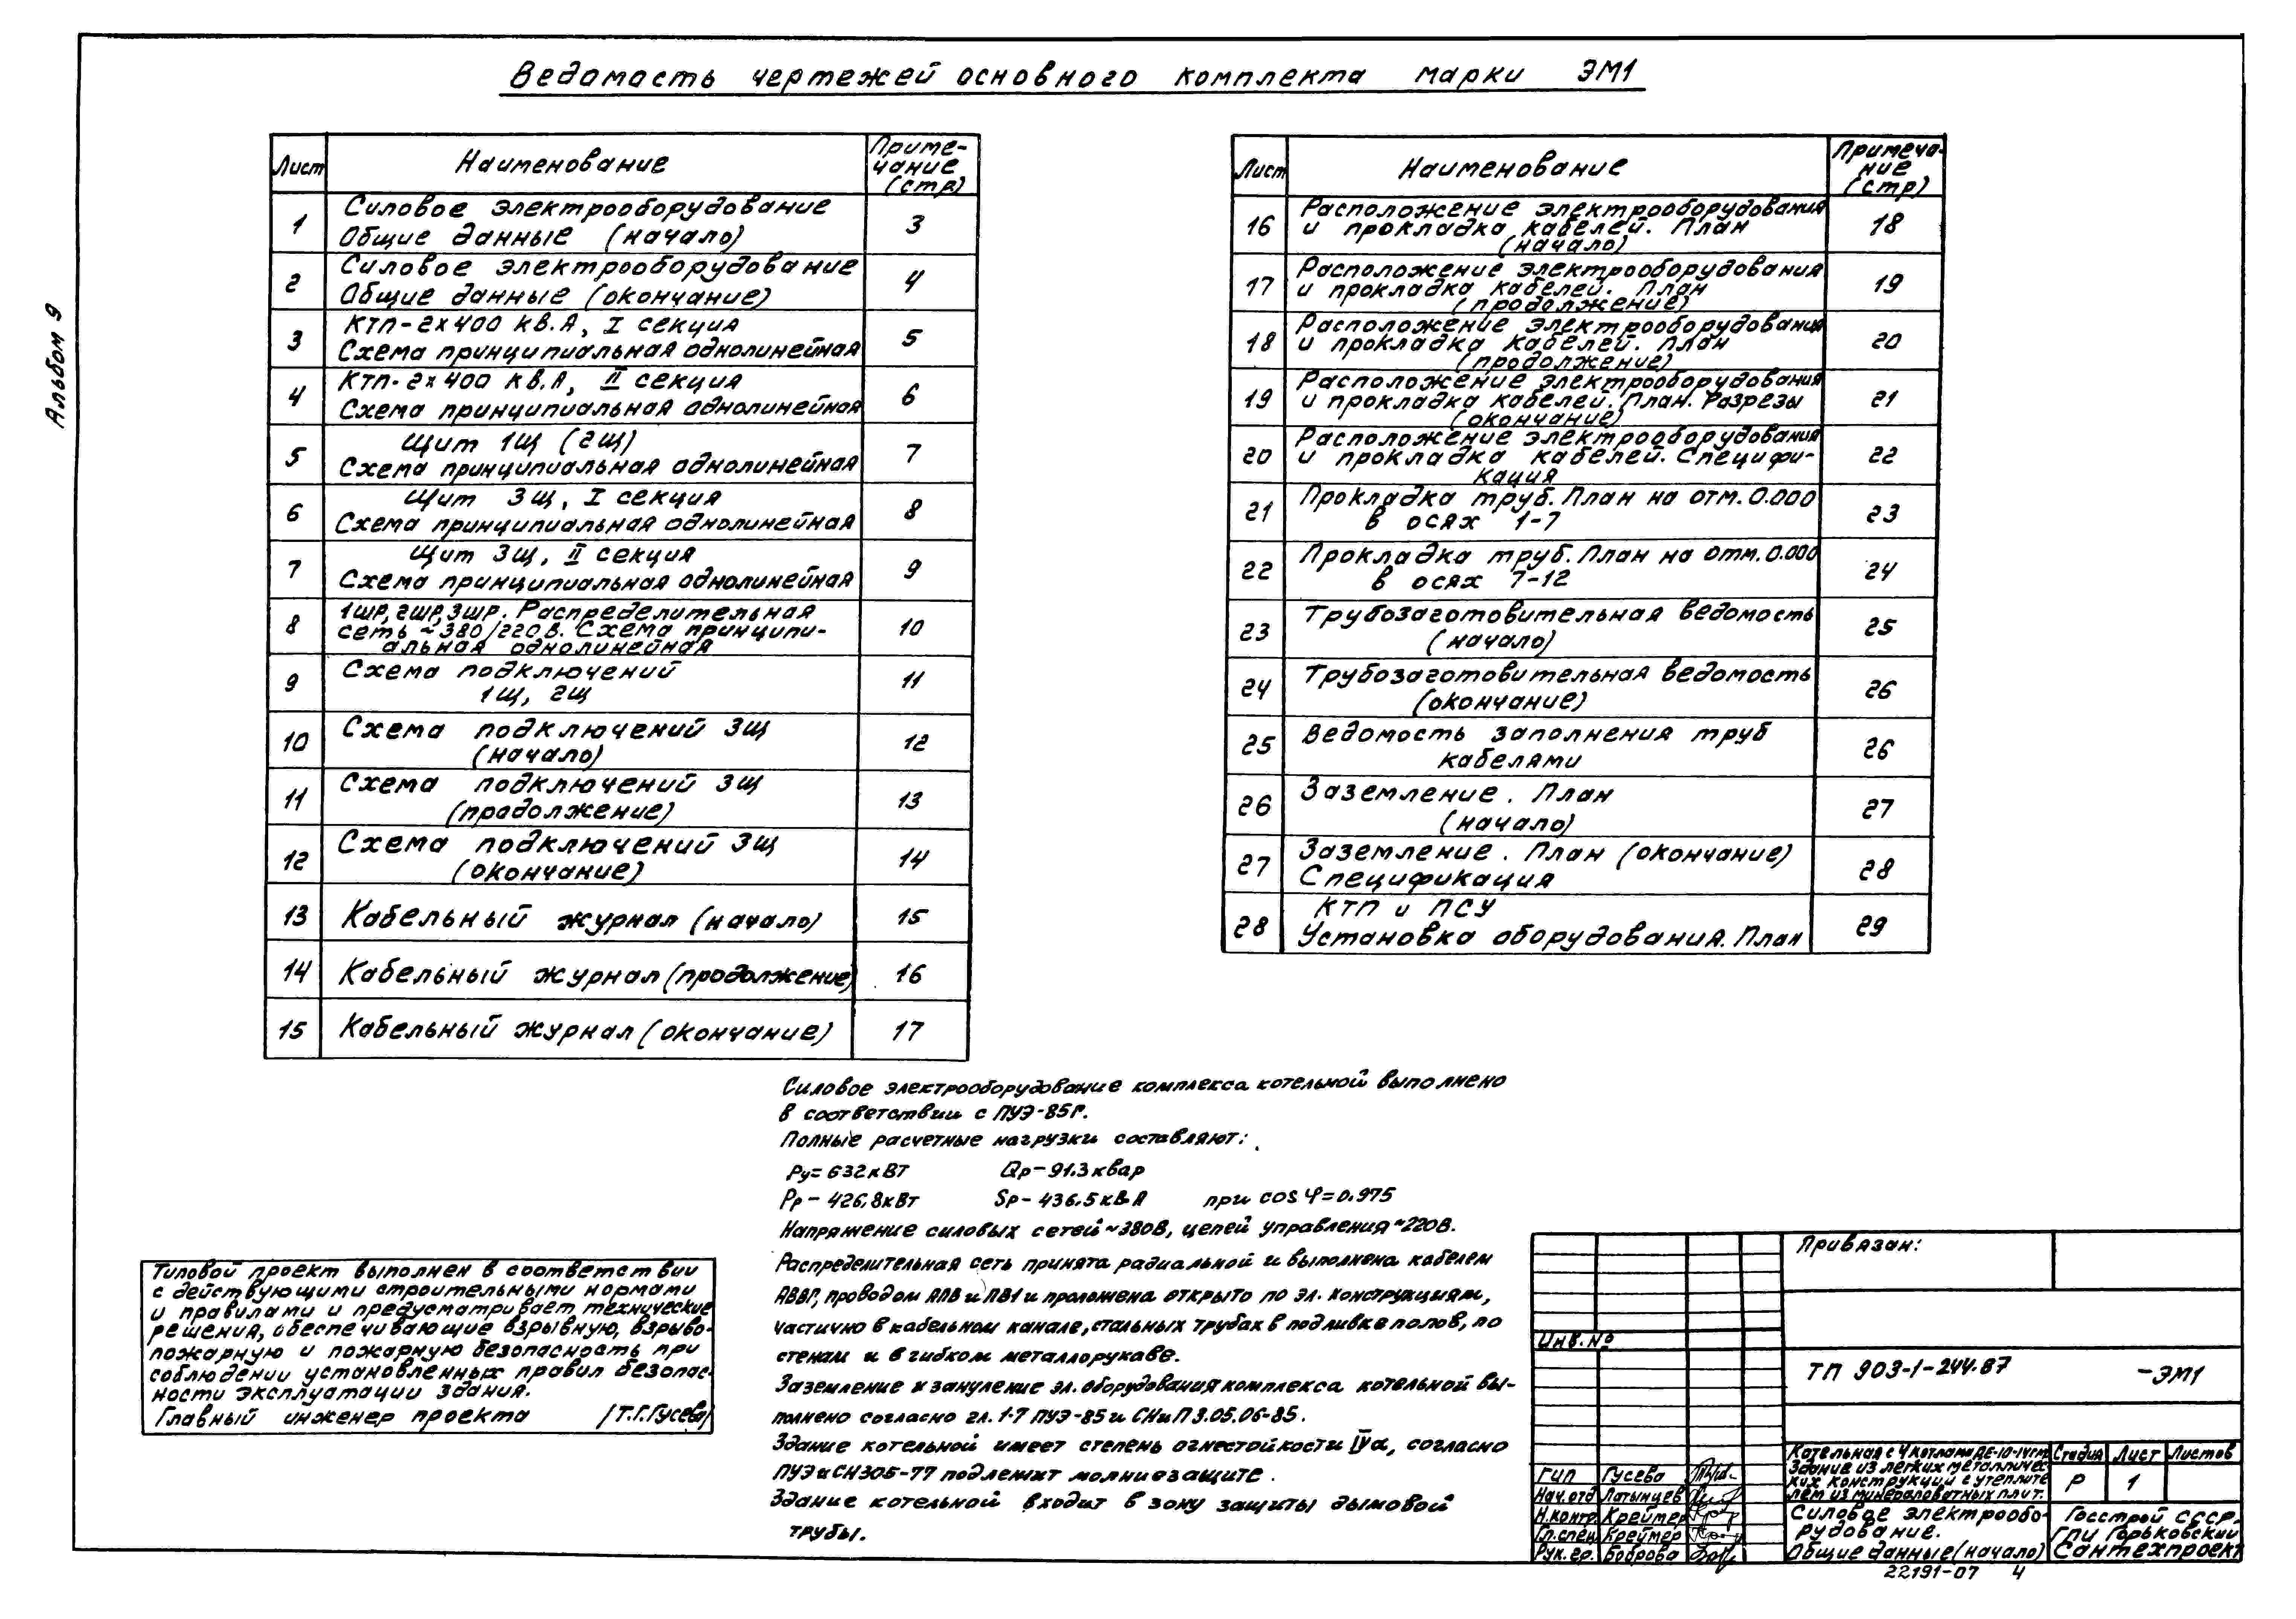 Альбом 9
Ведомость чертежей основного комплекта марки ЭМ1
Лист Наименование Приме-
чание
(стр)
1 Силовое электрооборудование 3
Общие данные (начало)
2 Силовое электрооборудование 4
Общие данные (окончание)
3 КТП-2х400 кв.А, I секция 5
Схема принципиальная однолинейная
4 КТП-2х400 кв.А, II секция 6
Схема принципиальная однолинейная
5 Щит 1Щ (2Щ) 7
Схема принципиальная однолинейная
6 Щит 3Щ, I секция 8
Схема принципиальная однолинейная
7 Щит 3Щ, II секция 9
Схема принципиальная однолинейная
8 1ШР, 2ШР, 3ШР. Распределительная 10
сеть ~380/220В. Схема принципи-
альная однолинейная
9 Схема подключений 11
1Щ, 2Щ
10 Схема подключений 3Щ 12
(начало)
11 Схема подключений 3Щ 13
(продолжение)
12 Схема подключений 3Щ 14
(окончание)
13 Кабельный журнал (начало) 15
14 Кабельный журнал (продолжение) 16
15 Кабельный журнал (окончание) 17
Лист Наименование Примеча-
ние
(стр)
16 Расположение электрооборудования 18
и прокладка кабелей. План
(начало)
17 Расположение электрооборудования 19
и прокладка кабелей. План
(продолжение)
18 Расположение электрооборудования 20
и прокладка кабелей. План
(продолжение)
19 Расположение электрооборудования 21
и прокладка кабелей. План. Разрезы
(окончание)
20 Расположение электрооборудования 22
и прокладка кабелей. Специфи-
кация
21 Прокладка труб. План на отм. 0.000 23
в осях 1-7
22 Прокладка труб. План на отм. 0.000 24
в осях 7-12
23 Трубозаготовительная ведомость 25
(начало)
24 Трубозаготовительная ведомость 26
(окончание)
25 Ведомость заполнения труб 26
кабелями
26 Заземление. План 27
(начало)
27 Заземление. План (окончание) 28
Спецификация
28 КТП и ПСУ 29
Установка оборудования. План
Силовое электрооборудование комплекса котельной выполнено
в соответствии с ПУЭ-85г.
Полные расчетные нагрузки составляют:
Ру=632кВт Qр-91.3квар
Рр-426,8кВт Sр-436.5кВА при cos φ=0.975
Напряжение силовых сетей ~380В, цепей управления ~220В.
Распределительная сеть принята радиальной и выполнена кабелем
АВВГ, проводом АПВ и ПВ1 и проложена открыто по эл. конструкциям,
частично в кабельном канале, стальных трубах в подливке полов, по
стенам и в гибком металлорукаве.
Заземление и зануление эл. оборудования комплекса котельной вы-
полнено согласно гл. 1-7 ПУЭ-85 и СНиП 3.05.06-85.
Здание котельной имеет степень огнестойкости IVа, согласно
ПУЭ и СН305-77 подлежит молниезащите.
Здание котельной входит в зону защиты дымовой
трубы.
Типовой проект выполнен в соответствии
с действующими строительными нормами
и правилами и предусматривает технические
решения, обеспечивающие взрывную, взрыво-
пожарную и пожарную безопасность при
соблюдении установленных правил безопас-
ности эксплуатации здания.
Главный инженер проекта /Т.Г.Гусева/
Привязан:
Инв. №
ТП 903-1-244.87 -ЭМ1
ГИП Гусева
Нач.отд Латынцев
Н.контр Креймер
Гл.спец Креймер
Рук.гр. Боброва
Котельная с 4 котлами ДЕ-10-14гм
Здание из легких металличес-
ких конструкций с утеплите
лем из минераловатных плит.
Стадия Лист Листов
Р 1
Силовое электрообо-
рудование.
Общие данные (начало)
Госстрой СССР
ГПИ Горьковский
Сантехпроект
22191-07 4